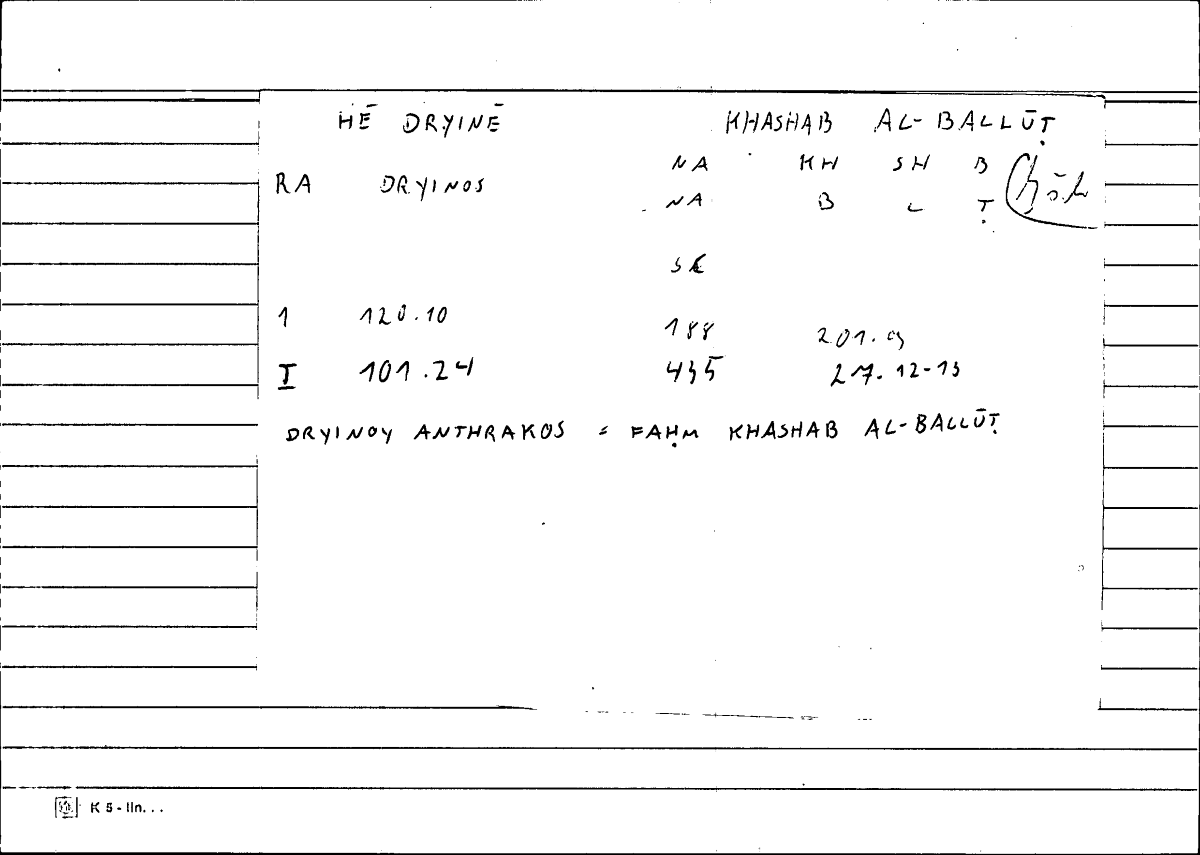 HĒ DRYINĒ KHASHAB AL-BALLŪṬ
NA KH SH B
RA DRYINOS
NA B L Ṭ
SE
1 120.10 188 201.9
I 101.24 435 27.12-13
DRYINOY ANTHRAKOS = FAḤM KHASHAB AL-BALLŪṬ
K 5 - lin. . .